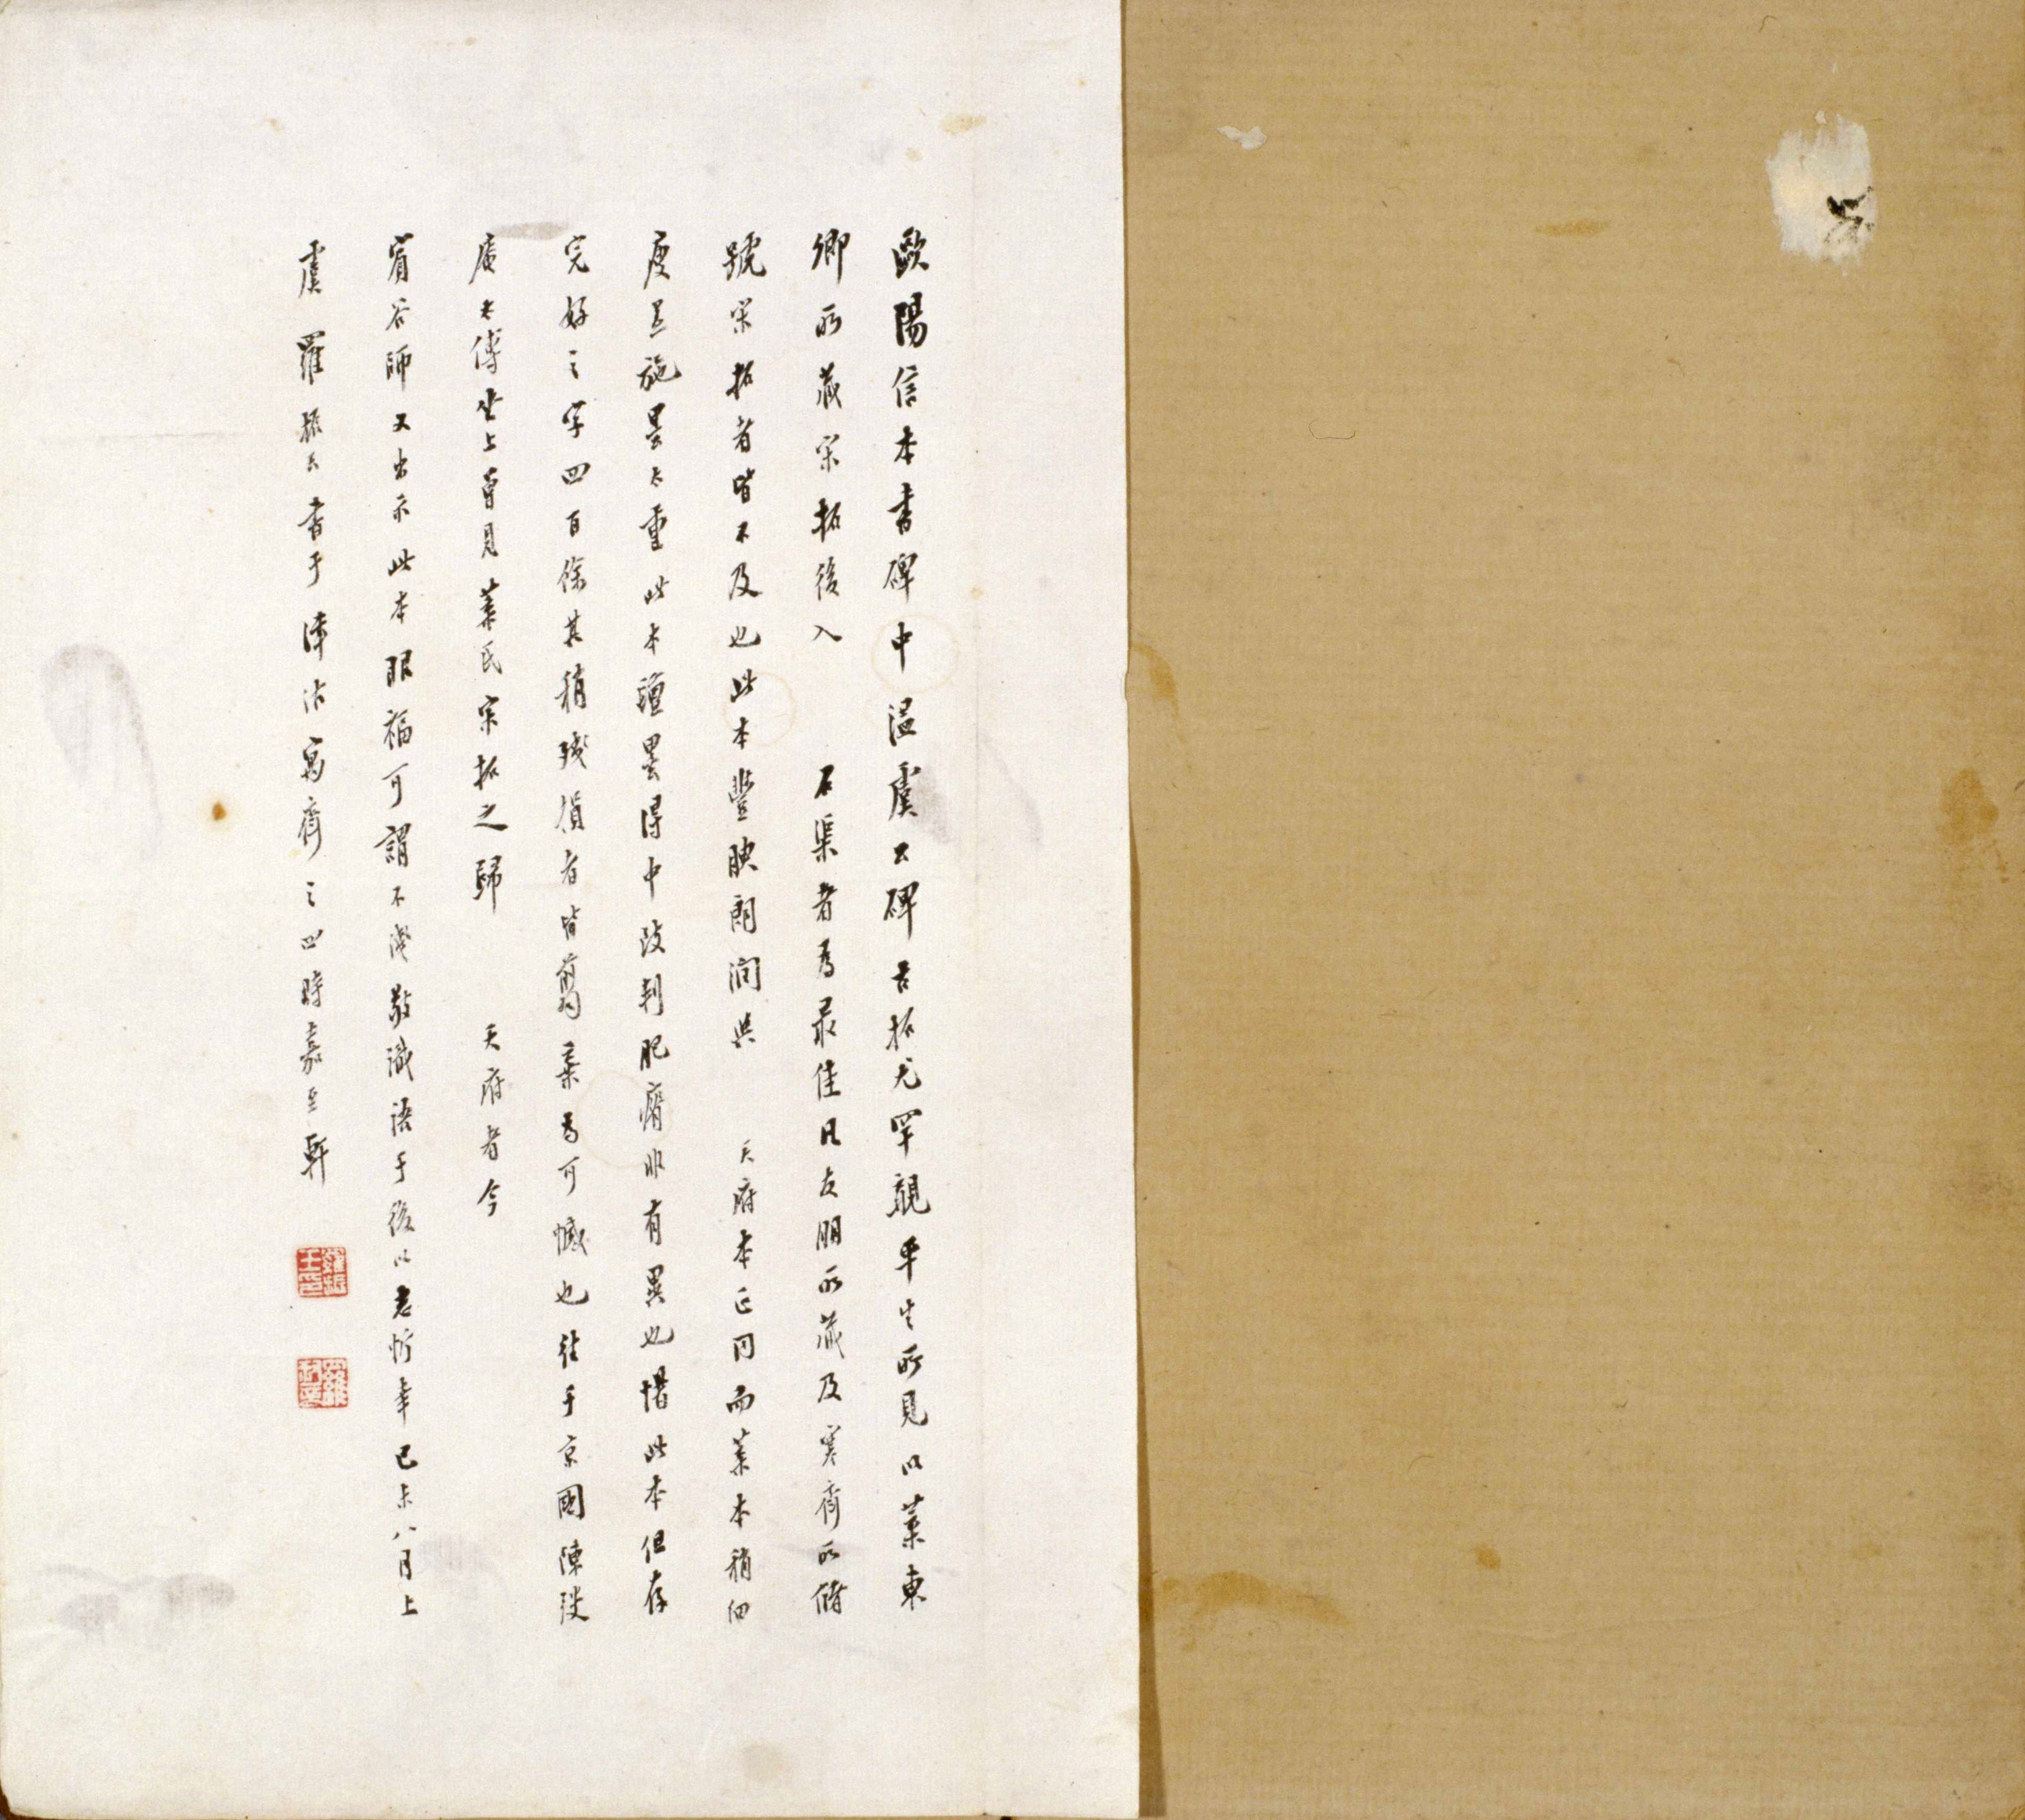 歐陽信本書碑中溫虞公碑古拓尤罕覯平生所見以葉東
卿所藏宋拓後入
石渠者爲最佳凡友朋所藏及寒齋所儲
號宋拓者皆不及也此本豐腴朗潤與
天府本正同而葉本稍細
度是施墨太重此本
墨得中故判肥瘠非有異也惜此本但存
完好之字四百餘其稍殘損者皆翦棄爲可憾也往于京國陳弢
庵太傅坐上曾見葉氏宋拓之歸
天府者今
師又出示此本眼福可謂不淺敬識語于後以志忻幸己未八月上
虞羅振玉書于津沽寓齋之四時嘉至軒
羅振玉印